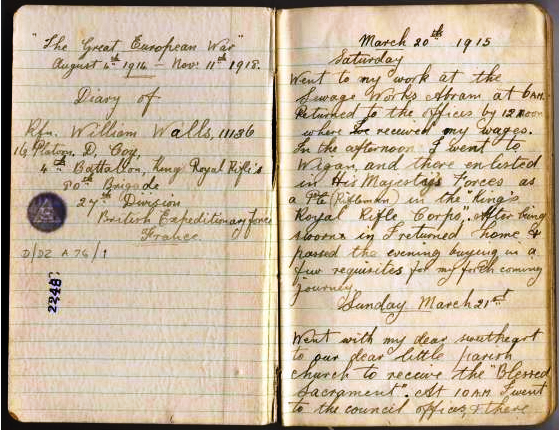 "The Great European War"
August 4th 1914 — Nov: 11th 1918.
Diary of
Rfn. William Walls, 11136
16 Platoon, D, Coy,
4th Battalion, King's Royal Rifle's
80th Brigade
27th Division
British Expeditionary force
France.
D/DZ A 76/1
22487
March 20th 1915
Saturday
Went to my work at the
Sewage Works Abram at 6 A.M.
Returned to the offices by 12 noon
where I received my wages.
In the afternoon I went to
Wigan, and there enlisted
in His Majesty's Forces as
a Pte (Rifleman) in the "King's
Royal Rifle Corps". After being
sworn in I returned home &
passed the evening buying in a
few requisites for my forth coming
journey.
Sunday March 21st
Went with my dear sweetheart
to our dear little parish
church to receive the "Blessed
Sacrament". At 10 A.M. I went
to the council offices, & there